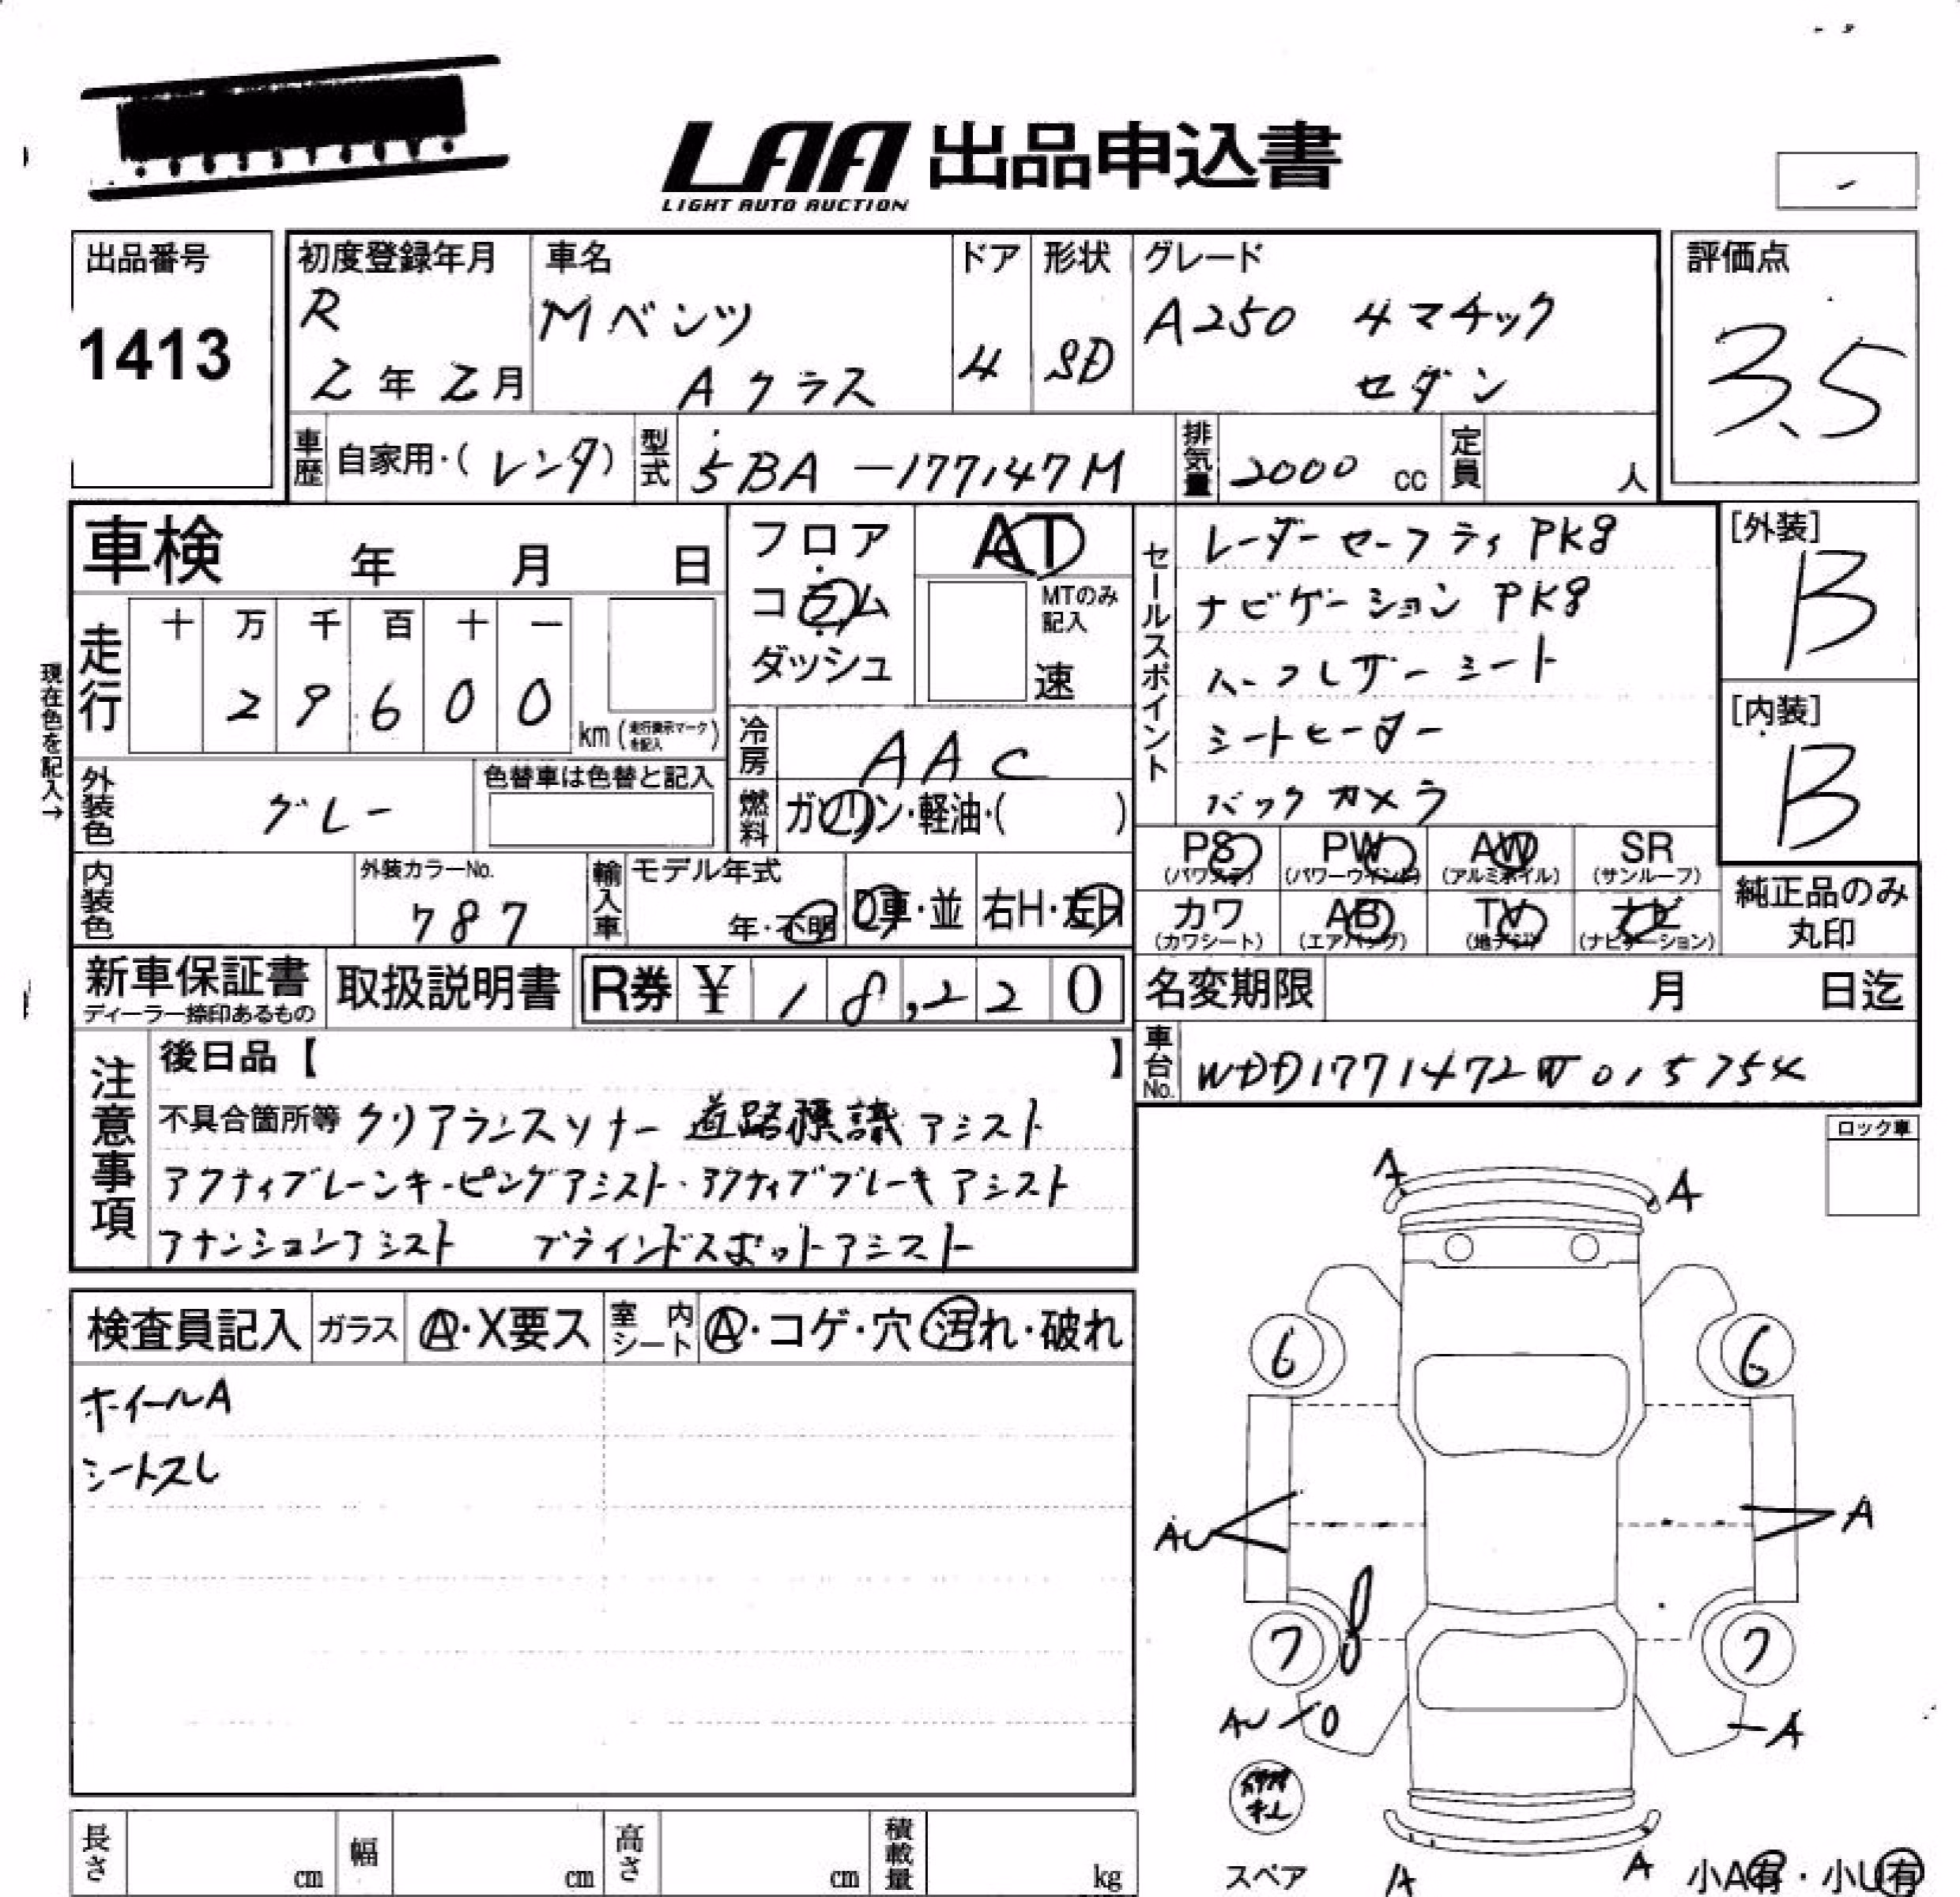 LAA 出品申込書
LIGHT AUTO AUCTION
出品番号
1413
初度登録年月
R
2年2月
車名
Mベンツ
Aクラス
ドア
4
形状
SD
グレード
A250 4マチック
セダン
評価点
3.5
車歴 自家用・(レンタ)
型式 5BA-177147M
排気量 2000 cc
定員 人
車検 年 月 日
フロア
コラム
ダッシュ
AT
MTのみ記入
速
セールスポイント
レーダーセーフティPKg
ナビゲーションPKg
ハーフレザーシート
シートヒーター
バックカメラ
[外装]
B
[内装]
B
現在色を記入→
走行
十 万 千 百 十 一
2 9 6 0 0
km(走行表示マークを記入)
冷房 AAC
燃料 ガソリン・軽油・( )
外装色 グレー
色替車は色替と記入
内装色
外装カラーNo.
787
輸入車
モデル年式
年・不明
D車・並
右H・左H
PS (パワステ)
PW (パワーウインド)
AW (アルミホイル)
SR (サンルーフ)
カワ (カワシート)
AB (エアバッグ)
TV (地デジ)
ナビ (ナビゲーション)
純正品のみ
丸印
新車保証書
ディーラー捺印あるもの
取扱説明書
R券 ¥ 18,220
名変期限 月 日迄
車台No. WDD1771472W015754
注意事項
後日品【 】
不具合箇所等 クリアランスソナー 道路標識アシスト
アクティブレーンキーピングアシスト・アクティブブレーキアシスト
アテンションアシスト ブラインドスポットアシスト
ロック車
検査員記入
ガラス A・X要ス
室内シート A・コゲ・穴・汚れ・破れ
ホイールA
シートスレ
A
A
6
6
AU
A
7
7
AU
A
スペア
A
A
小A有・小U有
長さ cm
幅 cm
高さ cm
積載量 kg